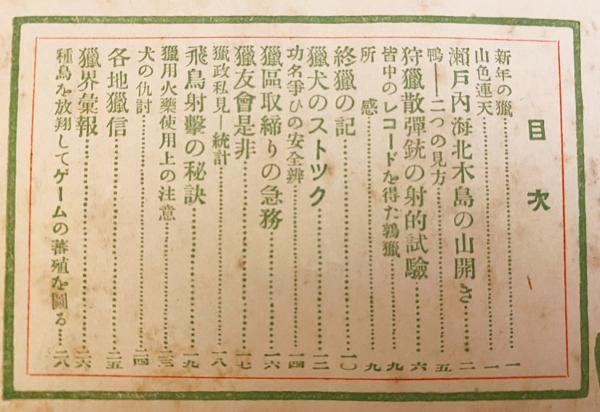 目次
新年の獵……一
山色連天……一
瀬戸内海北木島の山開き……二
鴨――二つの見方……五
狩獵散彈銃の射的試驗……六
皆中のレコードを得た鶉獵……九
所感……九
終獵の記……一〇
獵犬のストツク……一二
功名爭ひの安全辨……一四
獵區取締りの急務……一六
獵友會是非……一七
獵政私見―統計……一八
飛鳥射擊の秘訣……一九
獵用火藥使用上の注意……二三
犬の仇討……二四
各地獵信……二五
獵界彙報……二六
種鳥を放翔してゲームの蕃殖を圖る……二八